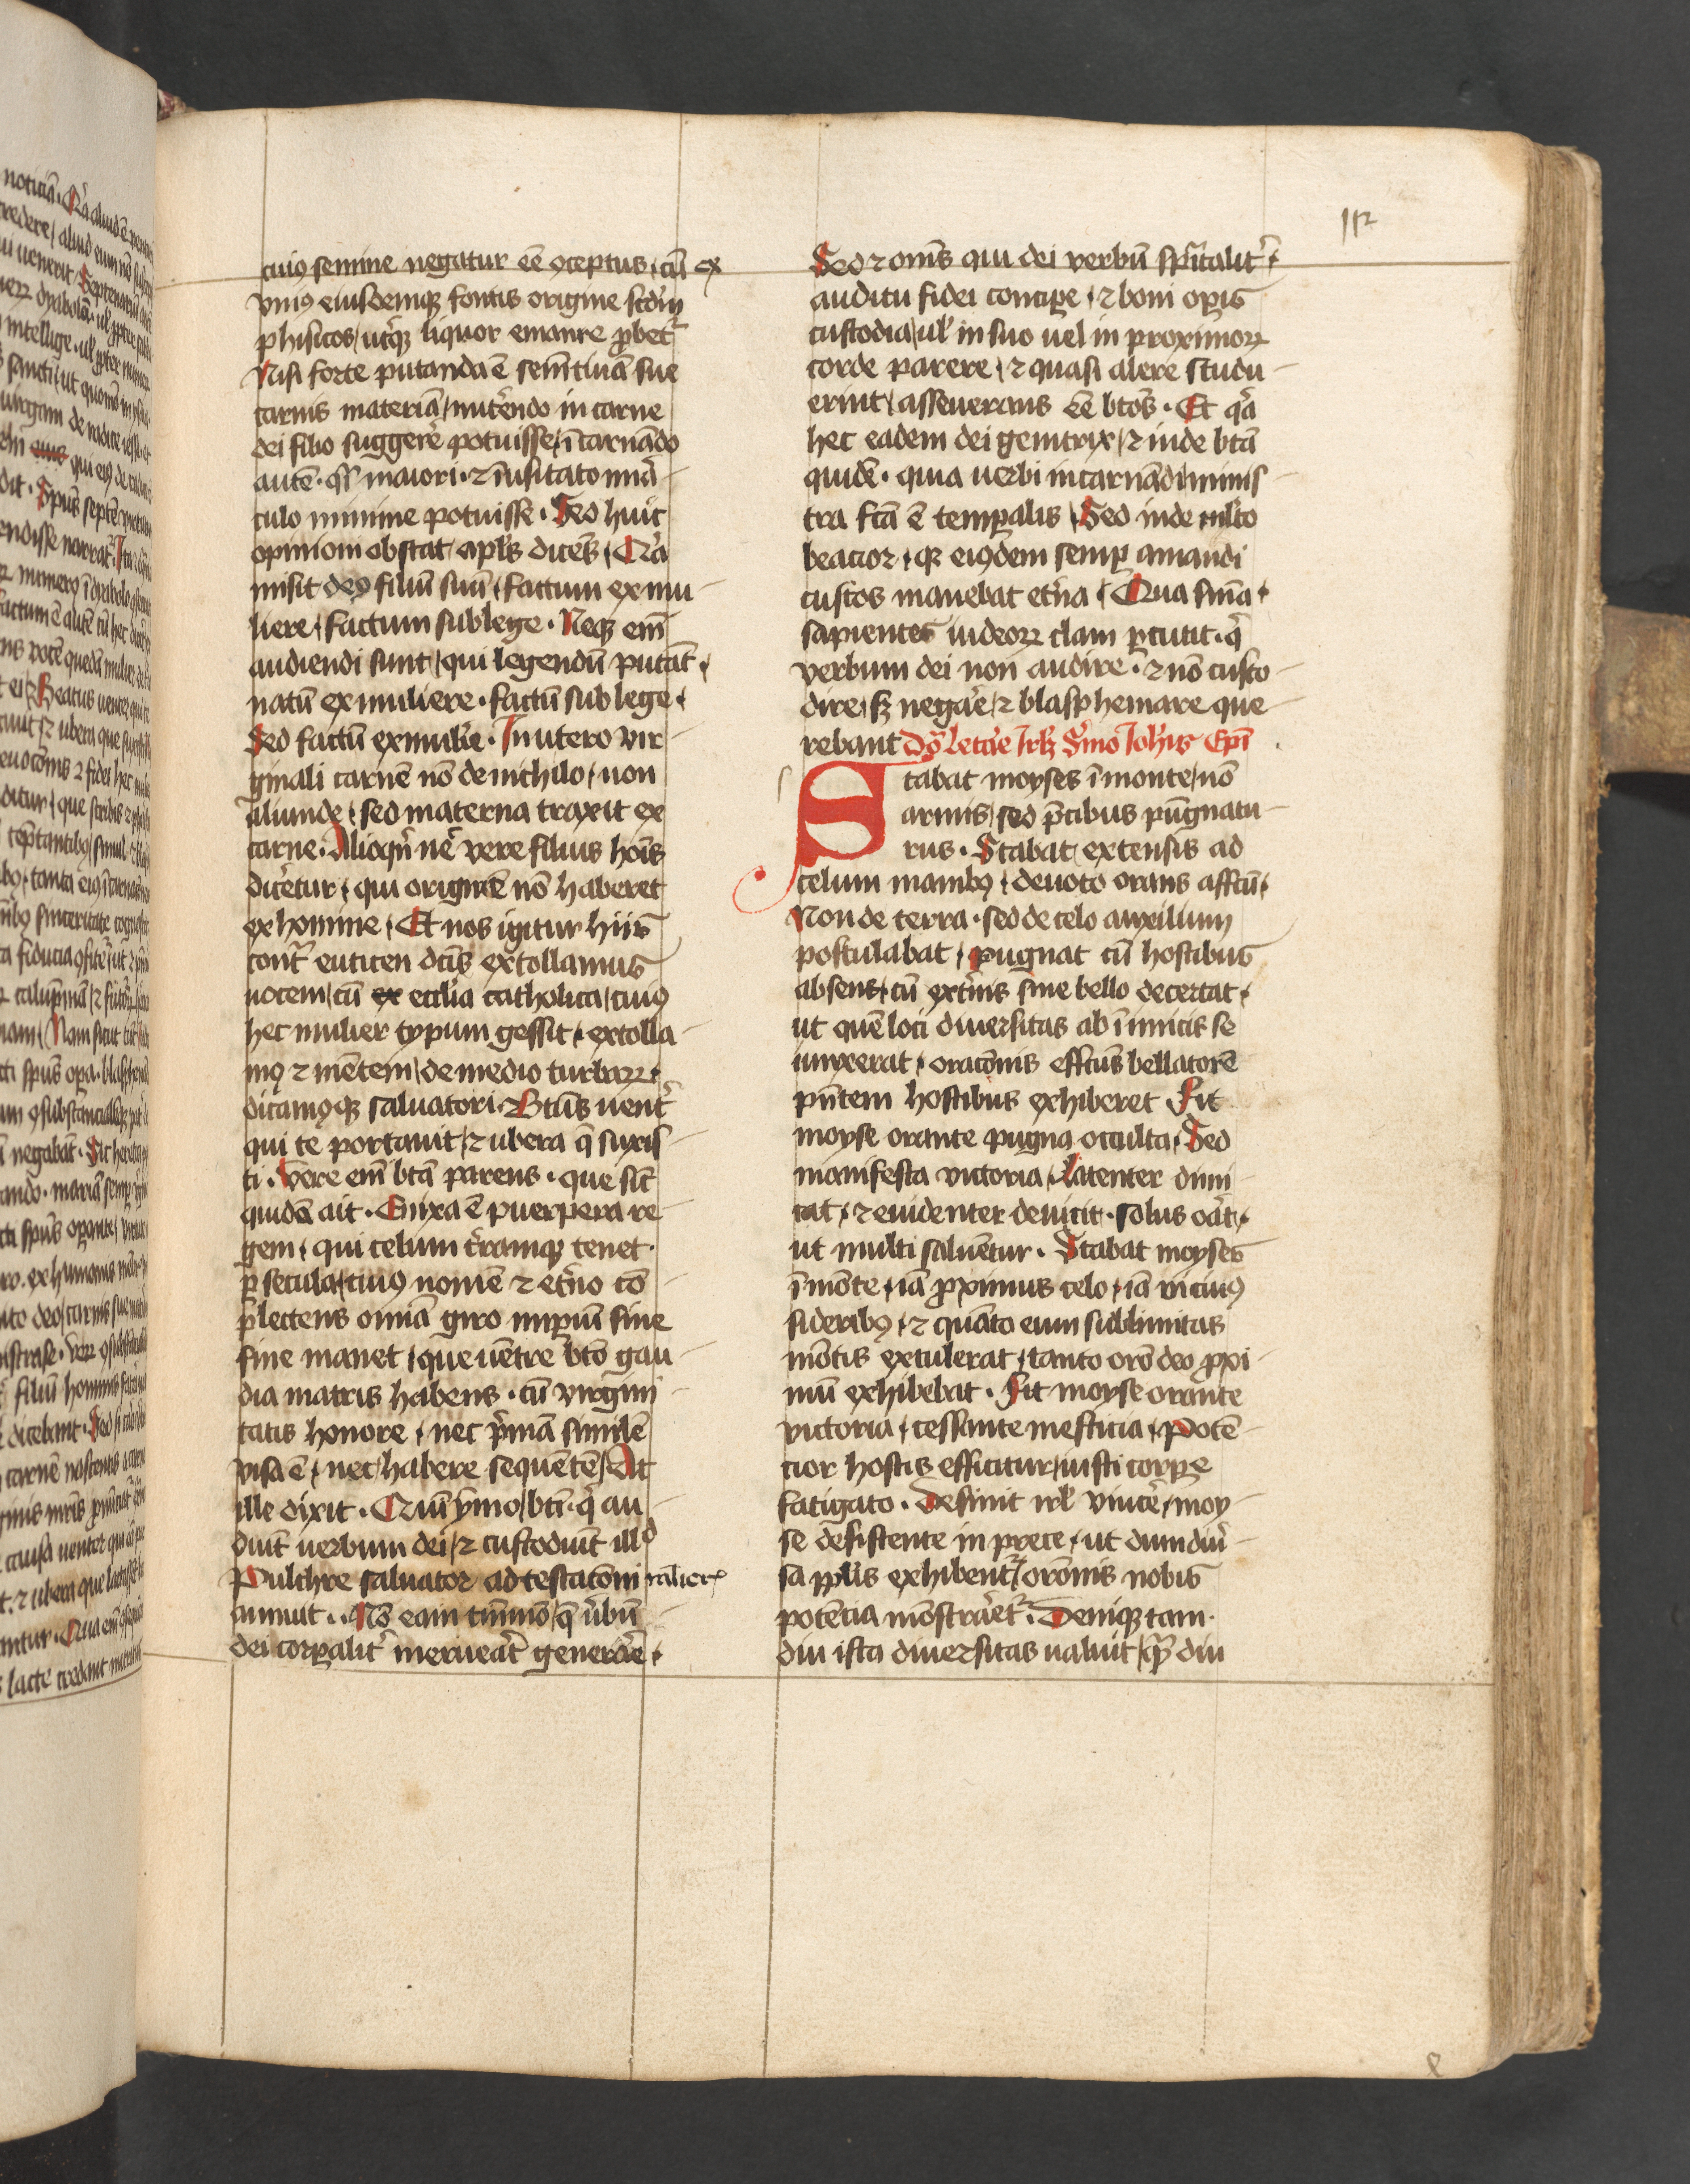 112
cuiꝯ semine negatur eē ꝯceptus, cū ex
vniꝯ eiusdemqꝫ fontis origine scd'm
phisicos, ut'qꝫ liquor emanare ꝓbet'
Nisi forte putanda ē semētinā sue
carnis materiā, nut'endo in carne
dei filio sugger'e potuisse, īcarnādo
autē. qͣi maiori. ⁊ īusitato mirͣ-
culo minime potuisse. Sed huic
opinioni obstat apl's dicēs, Qͥa
misit deꝯ filiū suū, factum ex mu-
liere, factum sub lege. Neqꝫ eī
audiendi sunt, qui legendū putāt,
natū ex muliere. factū sub lege,
Sed factū ex mulie'. In utero vir-
ginali carnē nō de nichilo, non
aliunde, sed materna traxit ex
carne. Alioqͥn n' vere filius hoīs
dic'etur, qui originē nō haberet
ex homine, Et nos igitur hiis
cont' euticen dc̄is extollamus
uocem, cū eccl'ia catholica, cuiꝯ
hec mulier typum gessit, extolla-
mꝯ ⁊ mētem, de medio turbaꝝ.
dicamꝯqꝫ saluatori. Bt̄us uent'
qui te portauit, ⁊ ubera q̄ suxis-
ti. Vere eī bt̄a parens. que sic̄
quidā ait. Enixa ē puerpera re-
gem, qui celum t'ramqꝫ tenet.
ꝑ secula, cuiꝯ nomē ⁊ et'no cō
plectens omīa giro imꝑiū sine
fine manet, que uētre bt̄o gau-
dia matris habens. cū virgini-
tatis honore, nec pͥmā similē
visa ē, nec habere sequētē, At
ille dixit. Quiī ymo, bt̄i. qͥ au-
diūt uerbum dei, ⁊ custodiūt illd
Pulchre saluator adtestacōni mulier'
annuit. Nō eam tm̄mō, q̄ ūbū
dei corꝑalit' meruerat generͣe.
Sed ⁊ oms̄ qui dei verbū spūalit',
auditu fidei conciꝑe, ⁊ boni oꝑis
custodia, ul' in suo uel in proximoꝝ
corde parere, ⁊ quasi alere studu-
erint, asseuerans eē bt̄os. Et qͥa
hec eadem dei genitrix, ⁊ inde bt̄a
quidē. quia uerbi incarnādi minis-
tra fc̄a ē temꝑalis, Sed inde mlto
beacior, qꝛ eiꝯdem semꝑ amandi
custos manebat et'na, Qua smīa,
sapientes iudeoꝝ clam ꝑcutit. qͥ
verbum dei non audire. ⁊ nō custo-
dire, sꝫ negar'e, ⁊ blasphemare que-
rebant Dō Letare Jrl'm S'mo Joh'is Epī
Stabat moyses ī monte, nō
armis, sed p̄cibus pūgnatu-
rus. Stabat extensis ad
celum manibꝯ, deuoto orans affc̄u,
Non de terra. sed de celo auxilium
postulabat, pugnat cū hostibus
absens, cū ext'nis sine bello decertat,
ut quē loci diuersitas ab īimicis se
iunxerat, oracōnis effc̄us bellatorē
pn̄tem hostibus exhiberet. Fit
moyse orante pugna occulta, Sed
manifesta victoria, Latenter dimi-
cat, ⁊ euidenter deuicit. solus orat,
ut multi saluētur. Stabat moyses
ī mōte, iā ꝓximus celo, iā vicinꝯ
sideribꝯ, ⁊ quāto eum sublimitas
mōtis extulerat, tanto orō deo ꝓxi-
mū exhibebat. Fit moyse orante
victoria, cessante mesticia, Potē-
cior hostis efficitur, iusti corꝑe
fatigato. Desinit irl' vincer'e, moy-
se desistente in prece, ut dum diu'-
sa ppl'is exhibent', orōnis nobis
potēcia mōstrar'et'. Deniqꝫ tam-
diu ista diuersitas ualuit, qͣ diu